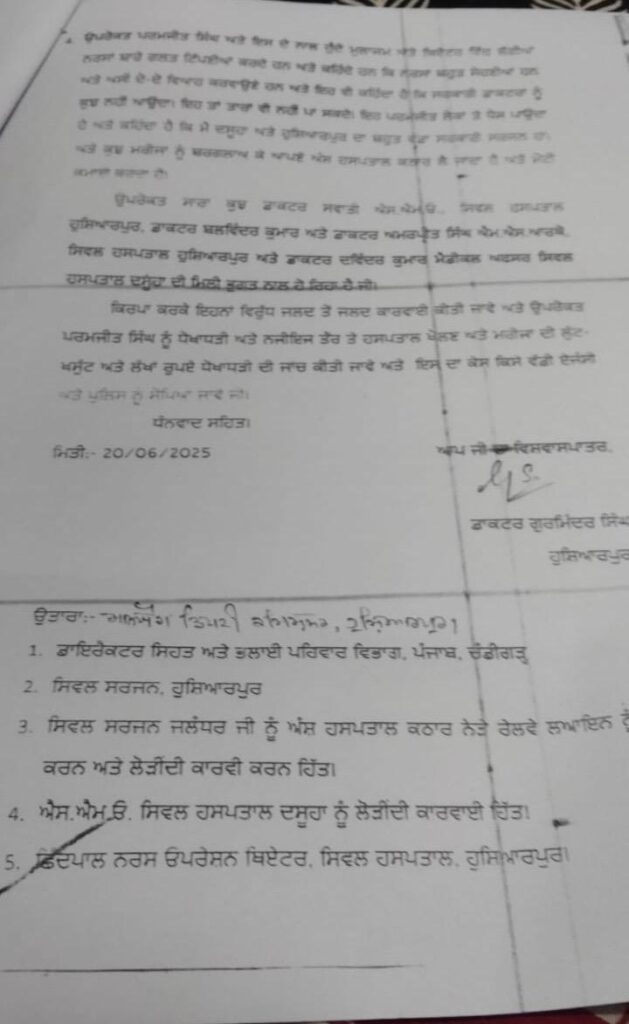 ਉਪਰੋਕਤ ਪਰਮਜੀਤ ਸਿੰਘ ਅਤੇ ਇਸ ਦੇ ਨਾਲ ਹੁੰਦੇ ਮੁਲਾਜਮ ਅਤੇ ਥਿਏਟਰ ਵਿੱਚ
ਨਰਸਾਂ ਬਾਰੇ ਗਲਤ ਟਿੱਪਣੀਆਂ ਕਰਦੇ ਹਨ ਅਤੇ ਕਹਿੰਦੇ ਹਨ ਕਿ ਨਰਸਾਂ ਬਹੁਤ ਸੋਹਣੀਆਂ ਹਨ
ਅਤੇ ਅਸੀਂ ਦੋ-ਦੋ ਵਿਆਹ ਕਰਵਾਉਣੇ ਹਨ ਅਤੇ ਇਹ ਵੀ ਕਹਿੰਦਾ ਹੈ ਕਿ ਸਰਕਾਰੀ ਡਾਕਟਰਾਂ ਨੂੰ
ਕੁਝ ਨਹੀਂ ਆਉਂਦਾ। ਇਹ ਤਾਂ ਤਾਰਾਂ ਵੀ ਨਹੀਂ ਪਾ ਸਕਦੇ। ਇਹ ਪਰਮਜੀਤ ਲੋਕਾਂ ਤੇ ਧੌਂਸ ਪਾਉਂਦਾ
ਹੈ ਅਤੇ ਕਹਿੰਦਾ ਹੈ ਕਿ ਮੈਂ ਦਸੂਹਾ ਅਤੇ ਹੁਸ਼ਿਆਰਪੁਰ ਦਾ ਬਹੁਤ ਵੱਡਾ ਸਰਕਾਰੀ ਸਰਜਨ ਹਾਂ।
ਅਤੇ ਕੁਝ ਮਰੀਜਾਂ ਨੂੰ ਵਰਗਲਾਅ ਕੇ ਆਪਣੇ ਅੰਸ਼ ਹਸਪਤਾਲ ਕਠਾਰ ਲੈ ਜਾਂਦਾ ਹੈ ਅਤੇ ਮੋਟੀ
ਕਮਾਈ ਕਰਦਾ ਹੈ।
ਉਪਰੋਕਤ ਸਾਰਾ ਕੁਝ ਡਾਕਟਰ ਸਵਾਤੀ ਐਸ.ਐਮ.ਓ., ਸਿਵਲ ਹਸਪਤਾਲ
ਹੁਸ਼ਿਆਰਪੁਰ, ਡਾਕਟਰ ਬਲਵਿੰਦਰ ਕੁਮਾਰ ਅਤੇ ਡਾਕਟਰ ਅਮਰਪ੍ਰੀਤ ਸਿੰਘ ਐਮ.ਐਸ.ਆਰਥੋ,
ਸਿਵਲ ਹਸਪਤਾਲ ਹੁਸ਼ਿਆਰਪੁਰ ਅਤੇ ਡਾਕਟਰ ਦਵਿੰਦਰ ਕੁਮਾਰ ਮੈਡੀਕਲ ਅਫਸਰ ਸਿਵਲ
ਹਸਪਤਾਲ ਦਸੂਹਾ ਦੀ ਮਿਲੀ ਭੁਗਤ ਨਾਲ ਹੋ ਰਿਹਾ ਹੈ ਜੀ।
ਕਿਰਪਾ ਕਰਕੇ ਇਹਨਾਂ ਵਿਰੁੱਧ ਜਲਦ ਤੋਂ ਜਲਦ ਕਾਰਵਾਈ ਕੀਤੀ ਜਾਵੇ ਅਤੇ ਉਪਰੋਕਤ
ਪਰਮਜੀਤ ਸਿੰਘ ਨੂੰ ਧੋਖਾਧੜੀ ਅਤੇ ਨਜਾਇਜ ਤੌਰ ਤੇ ਹਸਪਤਾਲ ਖੋਲਣ ਅਤੇ ਮਰੀਜਾਂ ਦੀ ਲੁੱਟ-
ਖਸੁੱਟ ਅਤੇ ਲੱਖਾਂ ਰੁਪਏ ਧੋਖਾਧੜੀ ਦੀ ਜਾਂਚ ਕੀਤੀ ਜਾਵੇ ਅਤੇ ਇਸ ਦਾ ਕੇਸ ਕਿਸੇ ਵੱਡੀ ਏਜੰਸੀ
ਅਤੇ ਪੁਲਿਸ ਨੂੰ ਸੌਂਪਿਆ ਜਾਵੇ ਜੀ।
ਧੰਨਵਾਦ ਸਹਿਤ।
ਮਿਤੀ:- 20/06/2025
ਆਪ ਜੀ ਵਿਸ਼ਵਾਸਪਾਤਰ,
ਡਾਕਟਰ ਗੁਰਮਿੰਦਰ ਸਿੰਘ
ਹੁਸ਼ਿਆਰਪੁਰ
ਉਤਾਰਾ:- ਡਿਪਟੀ ਕਮਿਸ਼ਨਰ, ਹੁਸ਼ਿਆਰਪੁਰ।
1. ਡਾਇਰੈਕਟਰ ਸਿਹਤ ਅਤੇ ਭਲਾਈ ਪਰਿਵਾਰ ਵਿਭਾਗ, ਪੰਜਾਬ, ਚੰਡੀਗੜ੍ਹ
2. ਸਿਵਲ ਸਰਜਨ, ਹੁਸ਼ਿਆਰਪੁਰ
3. ਸਿਵਲ ਸਰਜਨ ਜਲੰਧਰ ਜੀ ਨੂੰ ਅੰਸ਼ ਹਸਪਤਾਲ ਕਠਾਰ ਨੇੜੇ ਰੇਲਵੇ ਲਆਇਨ ਨੂੰ
ਕਰਨ ਅਤੇ ਲੋੜੀਂਦੀ ਕਾਰਵੀ ਕਰਨ ਹਿੱਤ।
4. ਐਸ.ਐਮ.ਓ. ਸਿਵਲ ਹਸਪਤਾਲ ਦਸੂਹਾ ਨੂੰ ਲੋੜੀਂਦੀ ਕਾਰਵਾਈ ਹਿੱਤ।
5. ਛਿੰਦਪਾਲ ਨਰਸ ਓਪਰੇਸ਼ਨ ਥਿਏਟਰ, ਸਿਵਲ ਹਸਪਤਾਲ, ਹੁਸ਼ਿਆਰਪੁਰ।